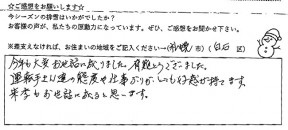 ☆ご感想をお願いします☆
今シーズンの排雪はいかがでしたか？
お客様の声が、私たちの原動力になっています。ぜひ、ご感想をお聞かせ下さい。
※差支えなければ、お住まいの地域をご記入ください→（札幌 市）（白石 区）
今年も大変お世話に成りました。有難とうございました。
運転手さん達の態度や仕事ぶりがいつも好感が持てます。
来季もお世話に成ろと思います。